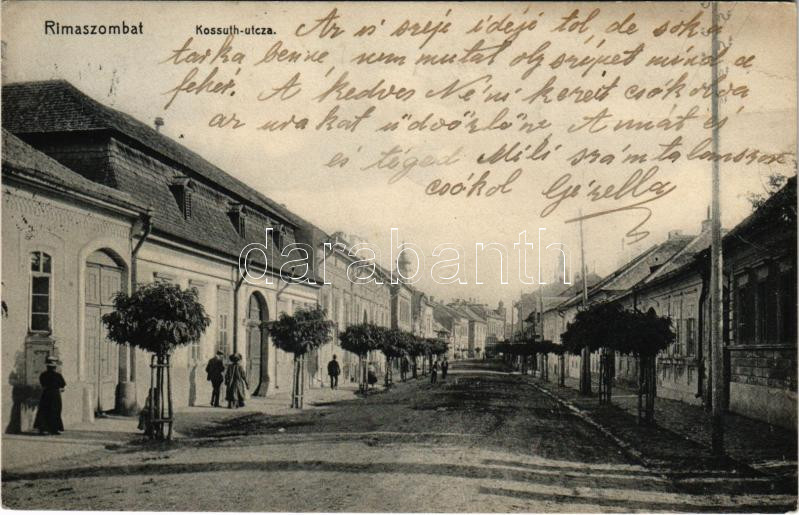 Rimaszombat
Kossuth-utcza.
Az is szép idéjó tol, de soka
tarka benne, nem mutat oly szépet mind a
fehér. A kedves Néni kezeit csókolva
az urakat üdvözlöne Annát és
és téged Mili számtalanszor
csókol Gézella
darabanth.com